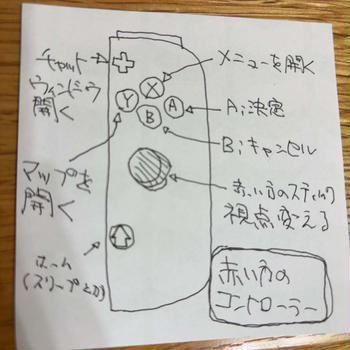 チャット
ウィンドウ
開く
メニューを開く
X
Y
A
B
A:決定
B:キャンセル
マップを
開く
赤い方のスティック
視点変える
ホーム
(スリープとか)
赤い方の
コントローラー